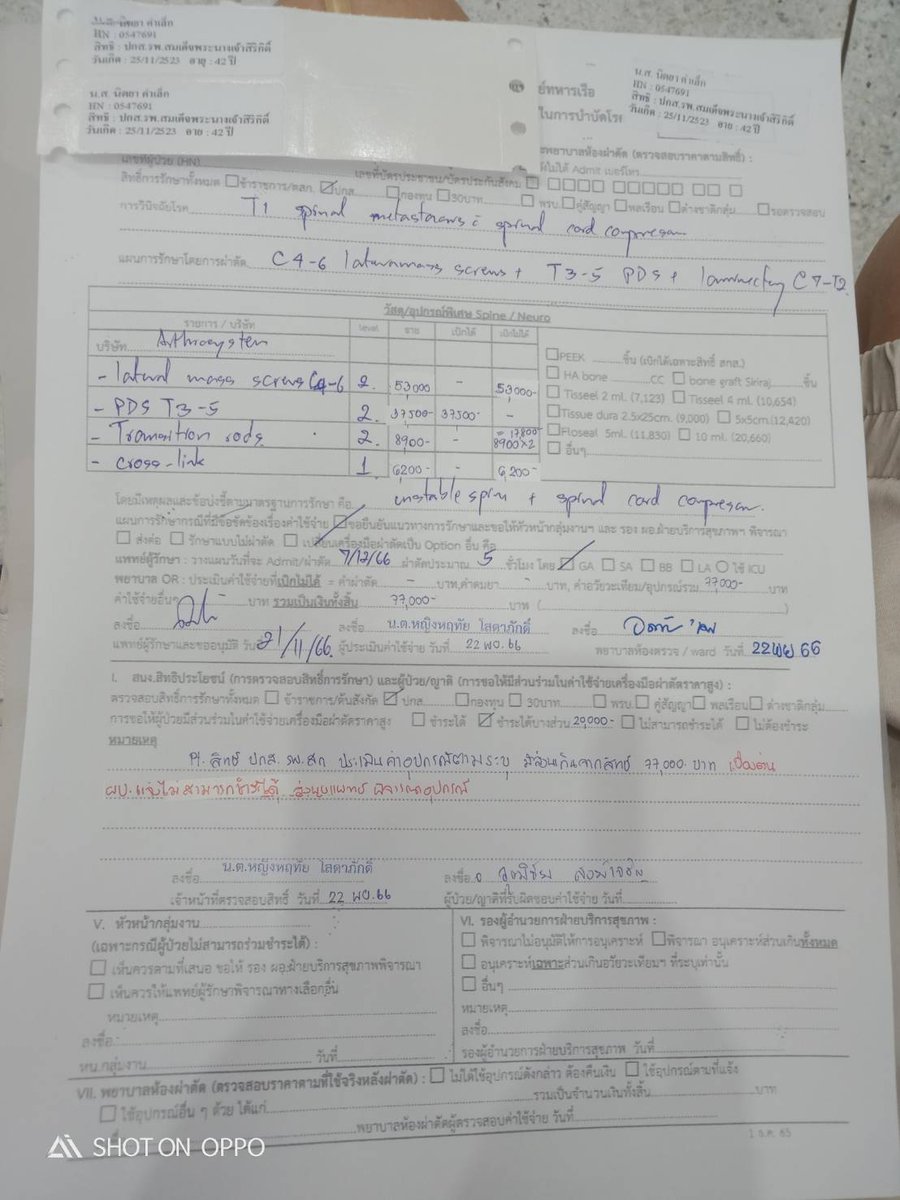 น.ส. นิตยา คำเล็ก
HN : 0547691
สิทธิ : ปกส.รพ.สมเด็จพระนางเจ้าสิริกิติ์
วันเกิด : 25/11/2523 อายุ : 42 ปี
น.ส. นิตยา คำเล็ก
HN : 0547691
สิทธิ : ปกส.รพ.สมเด็จพระนางเจ้าสิริกิติ์
วันเกิด : 25/11/2523 อายุ : 42 ปี
น.ส. นิตยา คำเล็ก
HN : 0547691
สิทธิ : ปกส.รพ.สมเด็จพระนางเจ้าสิริกิติ์
วันเกิด : 25/11/2523 อายุ : 42 ปี
ย์ทหารเรือ
ในการบำบัดโร
พยาบาลห้องผ่าตัด (ตรวจสอบราคาตามสิทธิ์) :
เลขที่ผู้ป่วย (HN) เลขที่บัตรประชาชน/บัตรประกันสังคม
ไม่ได้ Admit เบอร์โทร
สิทธิ์การรักษาทั้งหมด ข้าราชการ/ตสก. ปกส. กองทุน 30บาท พรบ. คู่สัญญา พลเรือน ต่างชาติกลุ่ม รอตรวจสอบ
การวินิจฉัยโรค T1 spinal spinal cord
แผนการรักษาโดยการผ่าตัด C4-6 screws + T3-5 PDS + C7-T2
วัสดุ/อุปกรณ์พิเศษ Spine / Neuro
รายการ / บริษัท level ราย เบิกได้ เบิกไม่ได้
บริษัท Arthrosystem
- lateral mass screws C4-6 2 53000 - 53000-
- PDS T3-5 2 37500 37500- -
- Transition rods 2 8900- - = 17800 8900x2
- cross-link 1 6200- 6,200-
PEEK ชิ้น (เบิกได้เฉพาะสิทธิ์ สกส.)
HA bone CC bone graft Siriraj ชิ้น
Tisseel 2 ml. (7,123) Tisseel 4 ml. (10,654)
Tissue dura 2.5x25cm. (9,000) 5x5cm.(12,420)
Floseal 5ml. (11,830) 10 ml. (20,660)
อื่นๆ
โดยมีเหตุผลและข้อบ่งชี้ตามมาตรฐานการรักษา คือ unstable spine + spinal cord
แผนการรักษากรณีที่มีข้อขัดข้องเรื่องค่าใช้จ่าย ขอยืนยันแนวทางการรักษาและขอให้หัวหน้ากลุ่มงานฯ และ รอง ผอ.ฝ่ายบริการสุขภาพฯ พิจารณา
ส่งต่อ รักษาแบบไม่ผ่าตัด เปลี่ยนเครื่องมือผ่าตัดเป็น Option อื่น คือ
แพทย์ผู้รักษา : วางแผนวันที่จะ Admit/ผ่าตัด 7/12/66 ผ่าตัดประมาณ 5 ชั่วโมง โดย GA SA BB LA ใช้ ICU
พยาบาล OR : ประเมินค่าใช้จ่ายที่เบิกไม่ได้ = ค่าผ่าตัด - บาท,ค่าดมยา - บาท, ค่าอวัยวะเทียม/อุปกรณ์รวม 77,000- บาท
ค่าใช้จ่ายอื่นๆ - บาท รวมเป็นเงินทั้งสิ้น 77,000- บาท (
ลงชื่อ ลงชื่อ น.ต.หญิงหฤทัย โสดาภักดิ์ ลงชื่อ
แพทย์ผู้รักษาและขออนุมัติ วันที่ 21/11/66 ผู้ประเมินค่าใช้จ่าย วันที่ 22 พย. 66 พยาบาลห้องตรวจ / ward วันที่ 22 พย 66
I. สนง.สิทธิประโยชน์ (การตรวจสอบสิทธิ์การรักษา) และผู้ป่วย/ญาติ (การขอให้มีส่วนร่วมในค่าใช้จ่ายเครื่องมือผ่าตัดราคาสูง) :
ตรวจสอบสิทธิ์การรักษาทั้งหมด ข้าราชการ/ต้นสังกัด ปกส. กองทุน 30บาท พรบ. คู่สัญญา พลเรือน ต่างชาติกลุ่ม
การขอให้ผู้ป่วยมีส่วนร่วมในค่าใช้จ่ายเครื่องมือผ่าตัดราคาสูง ชำระได้ ชำระได้บางส่วน 20,000- ไม่สามารถชำระได้ ไม่ต้องชำระ
หมายเหตุ
Pt. สิทธิ์ ปกส. รพ.สก ประเมินค่าอุปกรณ์ตามระบุ มีส่วนเกินจากสิทธิ์ 77,000 บาท เบื้องต้น
ผป.แจ้งไม่สามารถชำระได้ พิจารณาอุปกรณ์
ลงชื่อ น.ต.หญิงหฤทัย โสดาภักดิ์ ลงชื่อ
เจ้าหน้าที่ตรวจสอบสิทธิ์ วันที่ 22 พย.66 ผู้ป่วย/ญาติที่รับผิดชอบค่าใช้จ่าย วันที่
V. หัวหน้ากลุ่มงาน
(เฉพาะกรณีผู้ป่วยไม่สามารถร่วมชำระได้) :
เห็นควรตามที่เสนอ ขอให้ รอง ผอ.ฝ่ายบริการสุขภาพพิจารณา
เห็นควรให้แพทย์ผู้รักษาพิจารณาทางเลือกอื่น
หมายเหตุ
ลงชื่อ
หน.กลุ่มงาน วันที่
VI. รองผู้อำนวยการฝ่ายบริการสุขภาพ :
พิจารณาไม่อนุมัติให้การอนุเคราะห์ พิจารณา อนุเคราะห์ส่วนเกินทั้งหมด
อนุเคราะห์เฉพาะส่วนเกินอวัยวะเทียมฯ ที่ระบุเท่านั้น
อื่นๆ
หมายเหตุ
ลงชื่อ
รองผู้อำนวยการฝ่ายบริการสุขภาพ วันที่
VII. พยาบาลห้องผ่าตัด (ตรวจสอบราคาตามที่ใช้จริงหลังผ่าตัด) : ไม่ได้ใช้อุปกรณ์ดังกล่าว ต้องคืนเงิน ใช้อุปกรณ์ตามที่แจ้ง
ใช้อุปกรณ์อื่น ๆ ด้วย ได้แก่ รวมเป็นจำนวนเงินทั้งสิ้น บาท
พยาบาลห้องผ่าตัดผู้ตรวจสอบค่าใช้จ่าย วันที่
1 ธ.ค. 65
SHOT ON OPPO